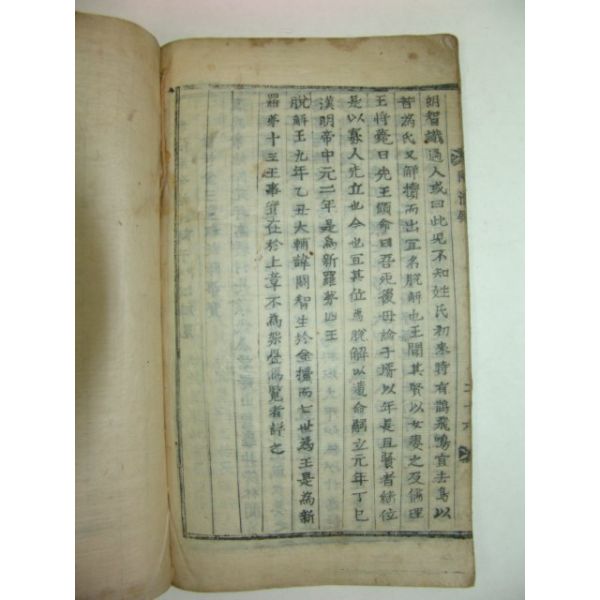 朗智識過人或曰此児不知姓氏初來時有鵲飛鳴宜去鳥以
昔爲氏又解櫝而出宜名脫解也王聞其賢以女妻之及儒理
王將薨曰先王顧命曰吾死後毋論子壻以年長且賢者継位
是以寡人先立也今也宜其位焉脫解以遺命嗣立元年丁巳
漢明帝中元二年是爲新羅第四王
脫解王九年乙丑大輔諱閼智生於金櫝而七世爲王是爲新
羅第十三王事實在於上章不爲架疊爲覽者詳之
二十六